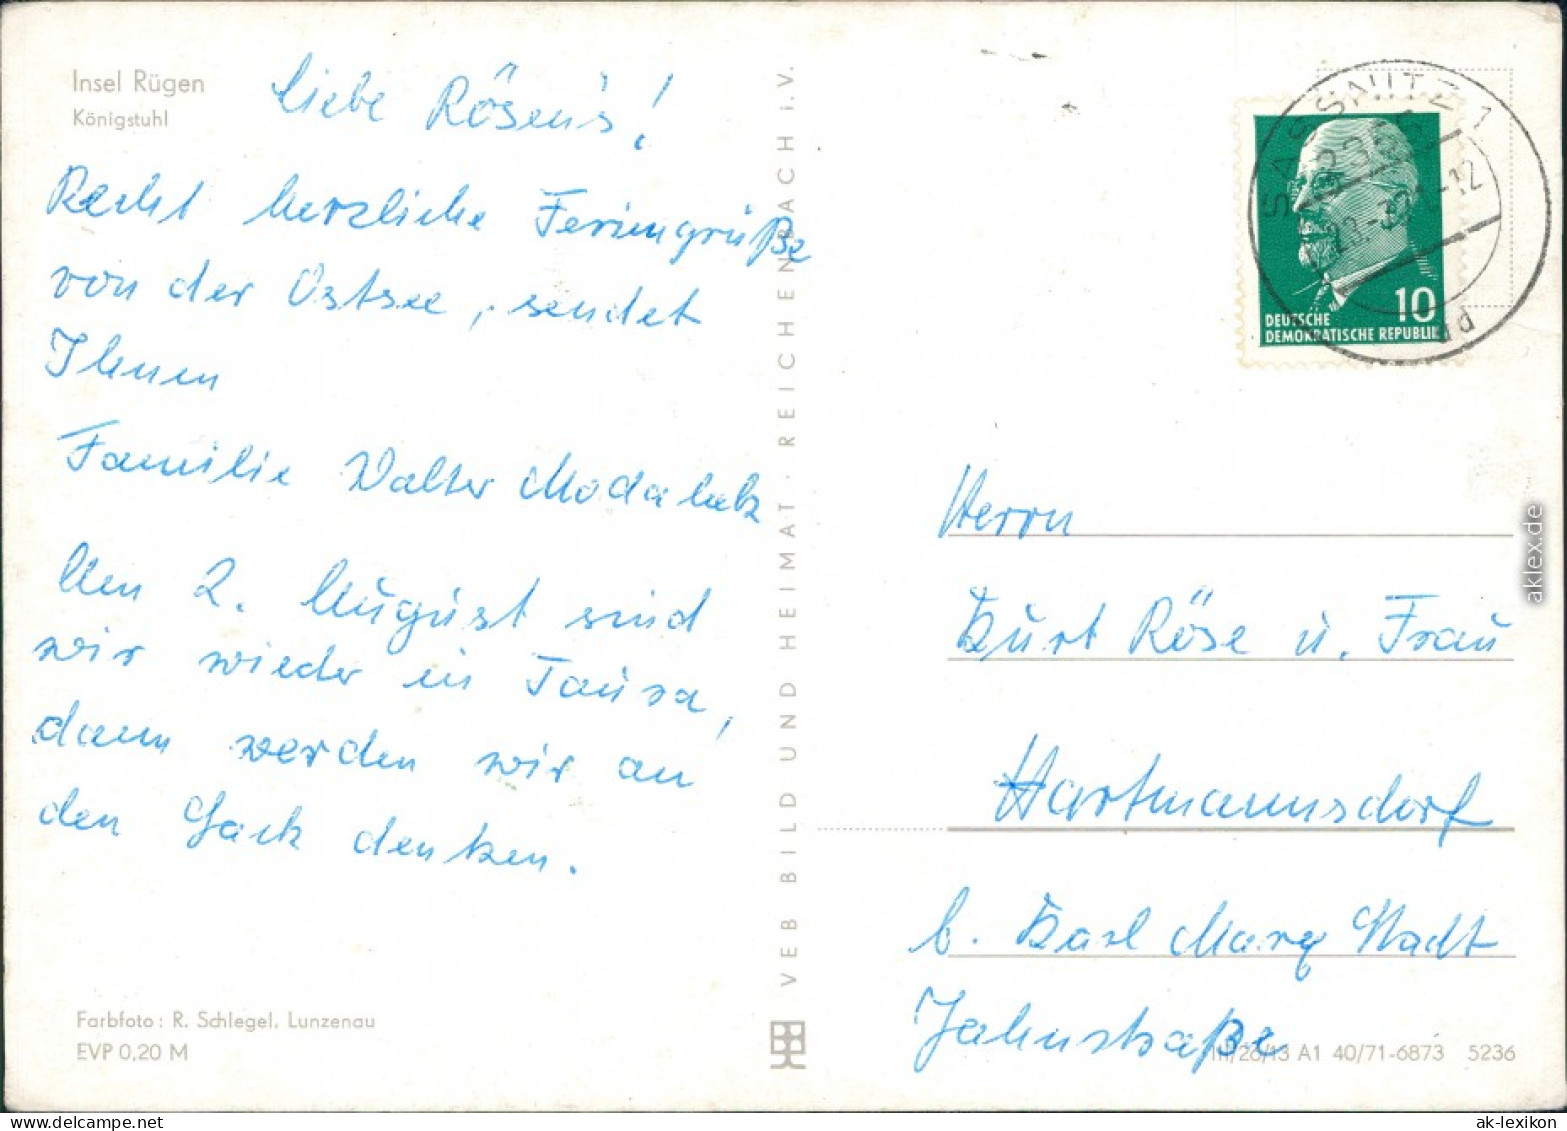 Insel Rügen
Königstuhl
Liebe Rösen's!
Recht herzliche Feriengrüße
von der Ostsee, sendet
Ihnen
Familie Walter
Am 2. August sind
wir wieder in Taura,
dann werden wir an
den Sack denken.
Farbfoto: R. Schlegel, Lunzenau
EVP 0,20 M
VEB BILD UND HEIMAT · REICHENBACH i. V.
SASSNITZ 1
2355
-12
10
DEUTSCHE
DEMOKRATISCHE REPUBLIK
Herrn
Kurt Röse u. Frau
Hartmannsdorf
b. Karl Marx Stadt
Jahnstraße
III/26/13 A1 40/71-6873 5236
aklex.de
ak-lexikon